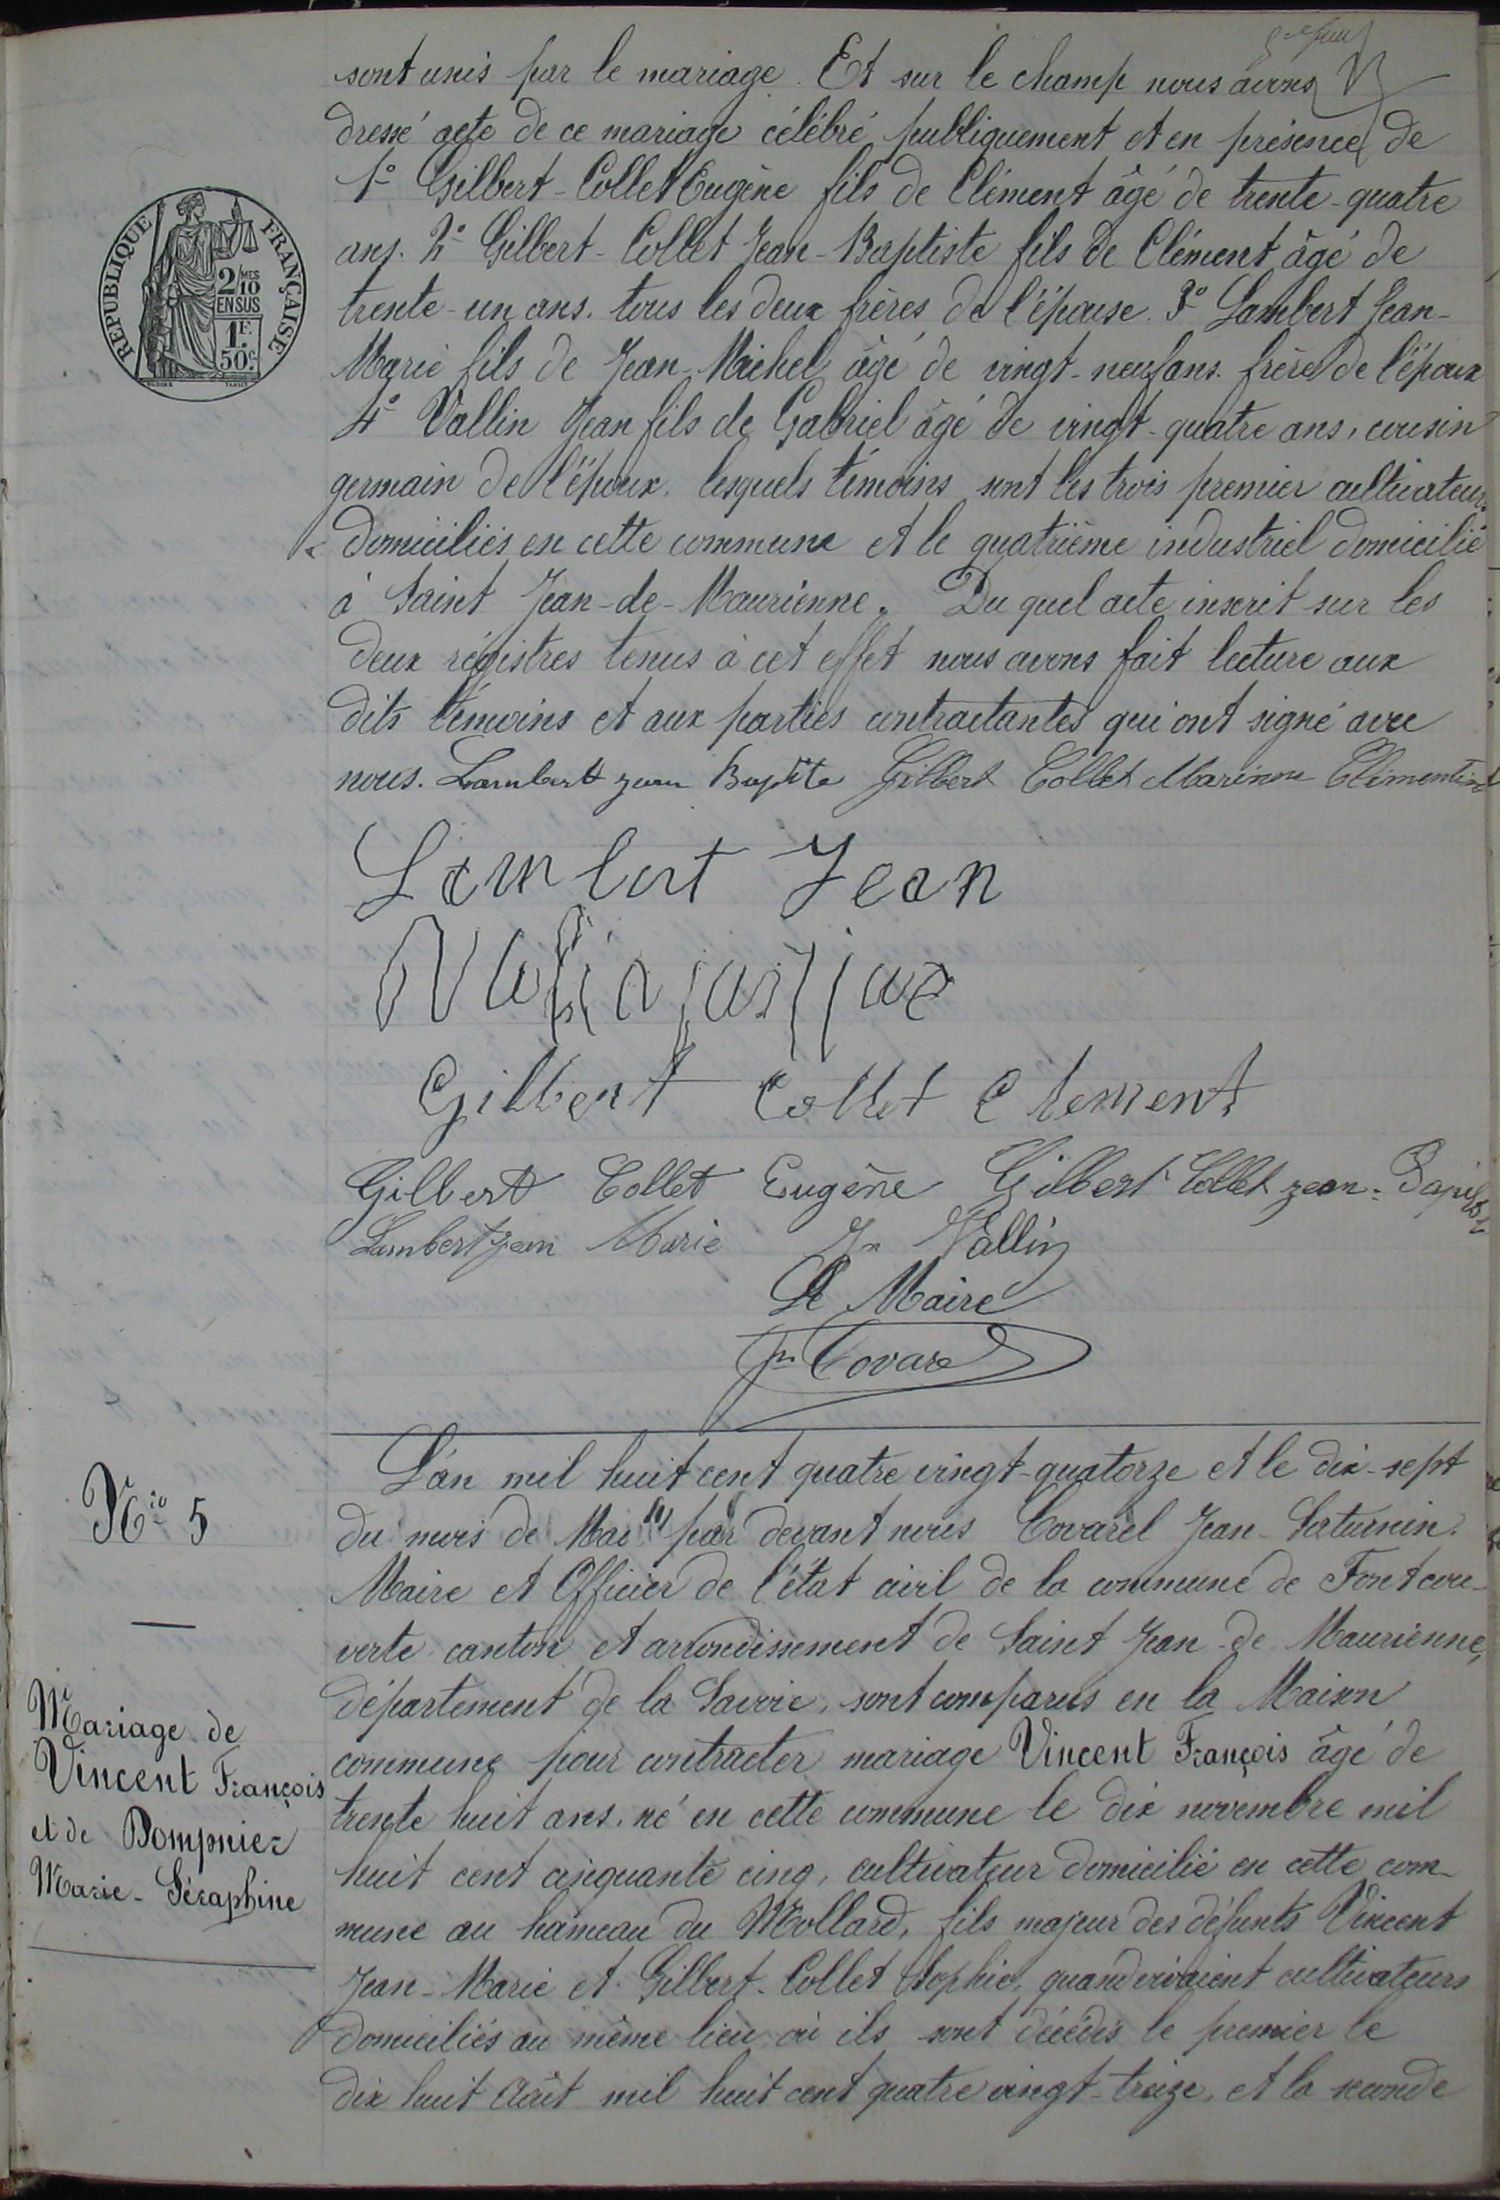 sont unis par le mariage. Et sur le champ nous avons
dressé acte de ce mariage célébré publiquement et en présence de
1° Gilbert-Collet Eugène fils de Clément âgé de trente-quatre
ans. 2° Gilbert-Collet Jean-Baptiste fils de Clément âgé de
trente-un ans. tous les deux frères de l'épouse. 3° Lambert Jean-
Marie fils de Jean-Michel âgé de vingt-neuf ans. frère de l'époux
4° Vallin Jean fils de Gabriel âgé de vingt-quatre ans, cousin
germain de l'époux. lesquels témoins sont les trois premier cultivateurs
domiciliés en cette commune et le quatrième industriel domicilié
à Saint Jean-de-Maurienne. Du quel acte inscrit sur les
deux régistres tenus à cet effet nous avons fait lecture aux
dits témoins et aux parties contractantes qui ont signé avec
nous. Lambert jean Baptite Gilbert Collet Marinne Clémentine
Lambert Jean
Gilbert Collet Clement
Gilbert Collet Eugène Gilbert Collet jean-Bapiste
Lambert jean Marie Jn Vallin
Le Maire
Jn Covarel
RÉPUBLIQUE FRANÇAISE
2/10 MES
EN SUS
1F.
50c.
N° 5
L'an mil huit cent quatre vingt-quatorze et le dix-sept
du mois de Mai par devant nous Covarel Jean-Saturnin.
Maire et Officier de l'état civil de la commune de Fontcou-
verte canton et arrondissement de Saint Jean-de-Maurienne,
département de la Savoie, sont comparus en la Maison
commune pour contracter mariage Vincent François âgé de
trente huit ans, né en cette commune le dix novembre mil
huit cent cinquante cinq, cultivateur domicilié en cette com-
mune au hameau du Mollard, fils majeur des défunts Vincent
Jean-Marie et Gilbert-Collet Sophie, quand vivaient cultivateurs
domiciliés au même lieu où ils sont décédés le premier le
dix huit Août mil huit cent quatre vingt-treize, et la seconde
Mariage de
Vincent François
et de Dompnier
Marie-Séraphine